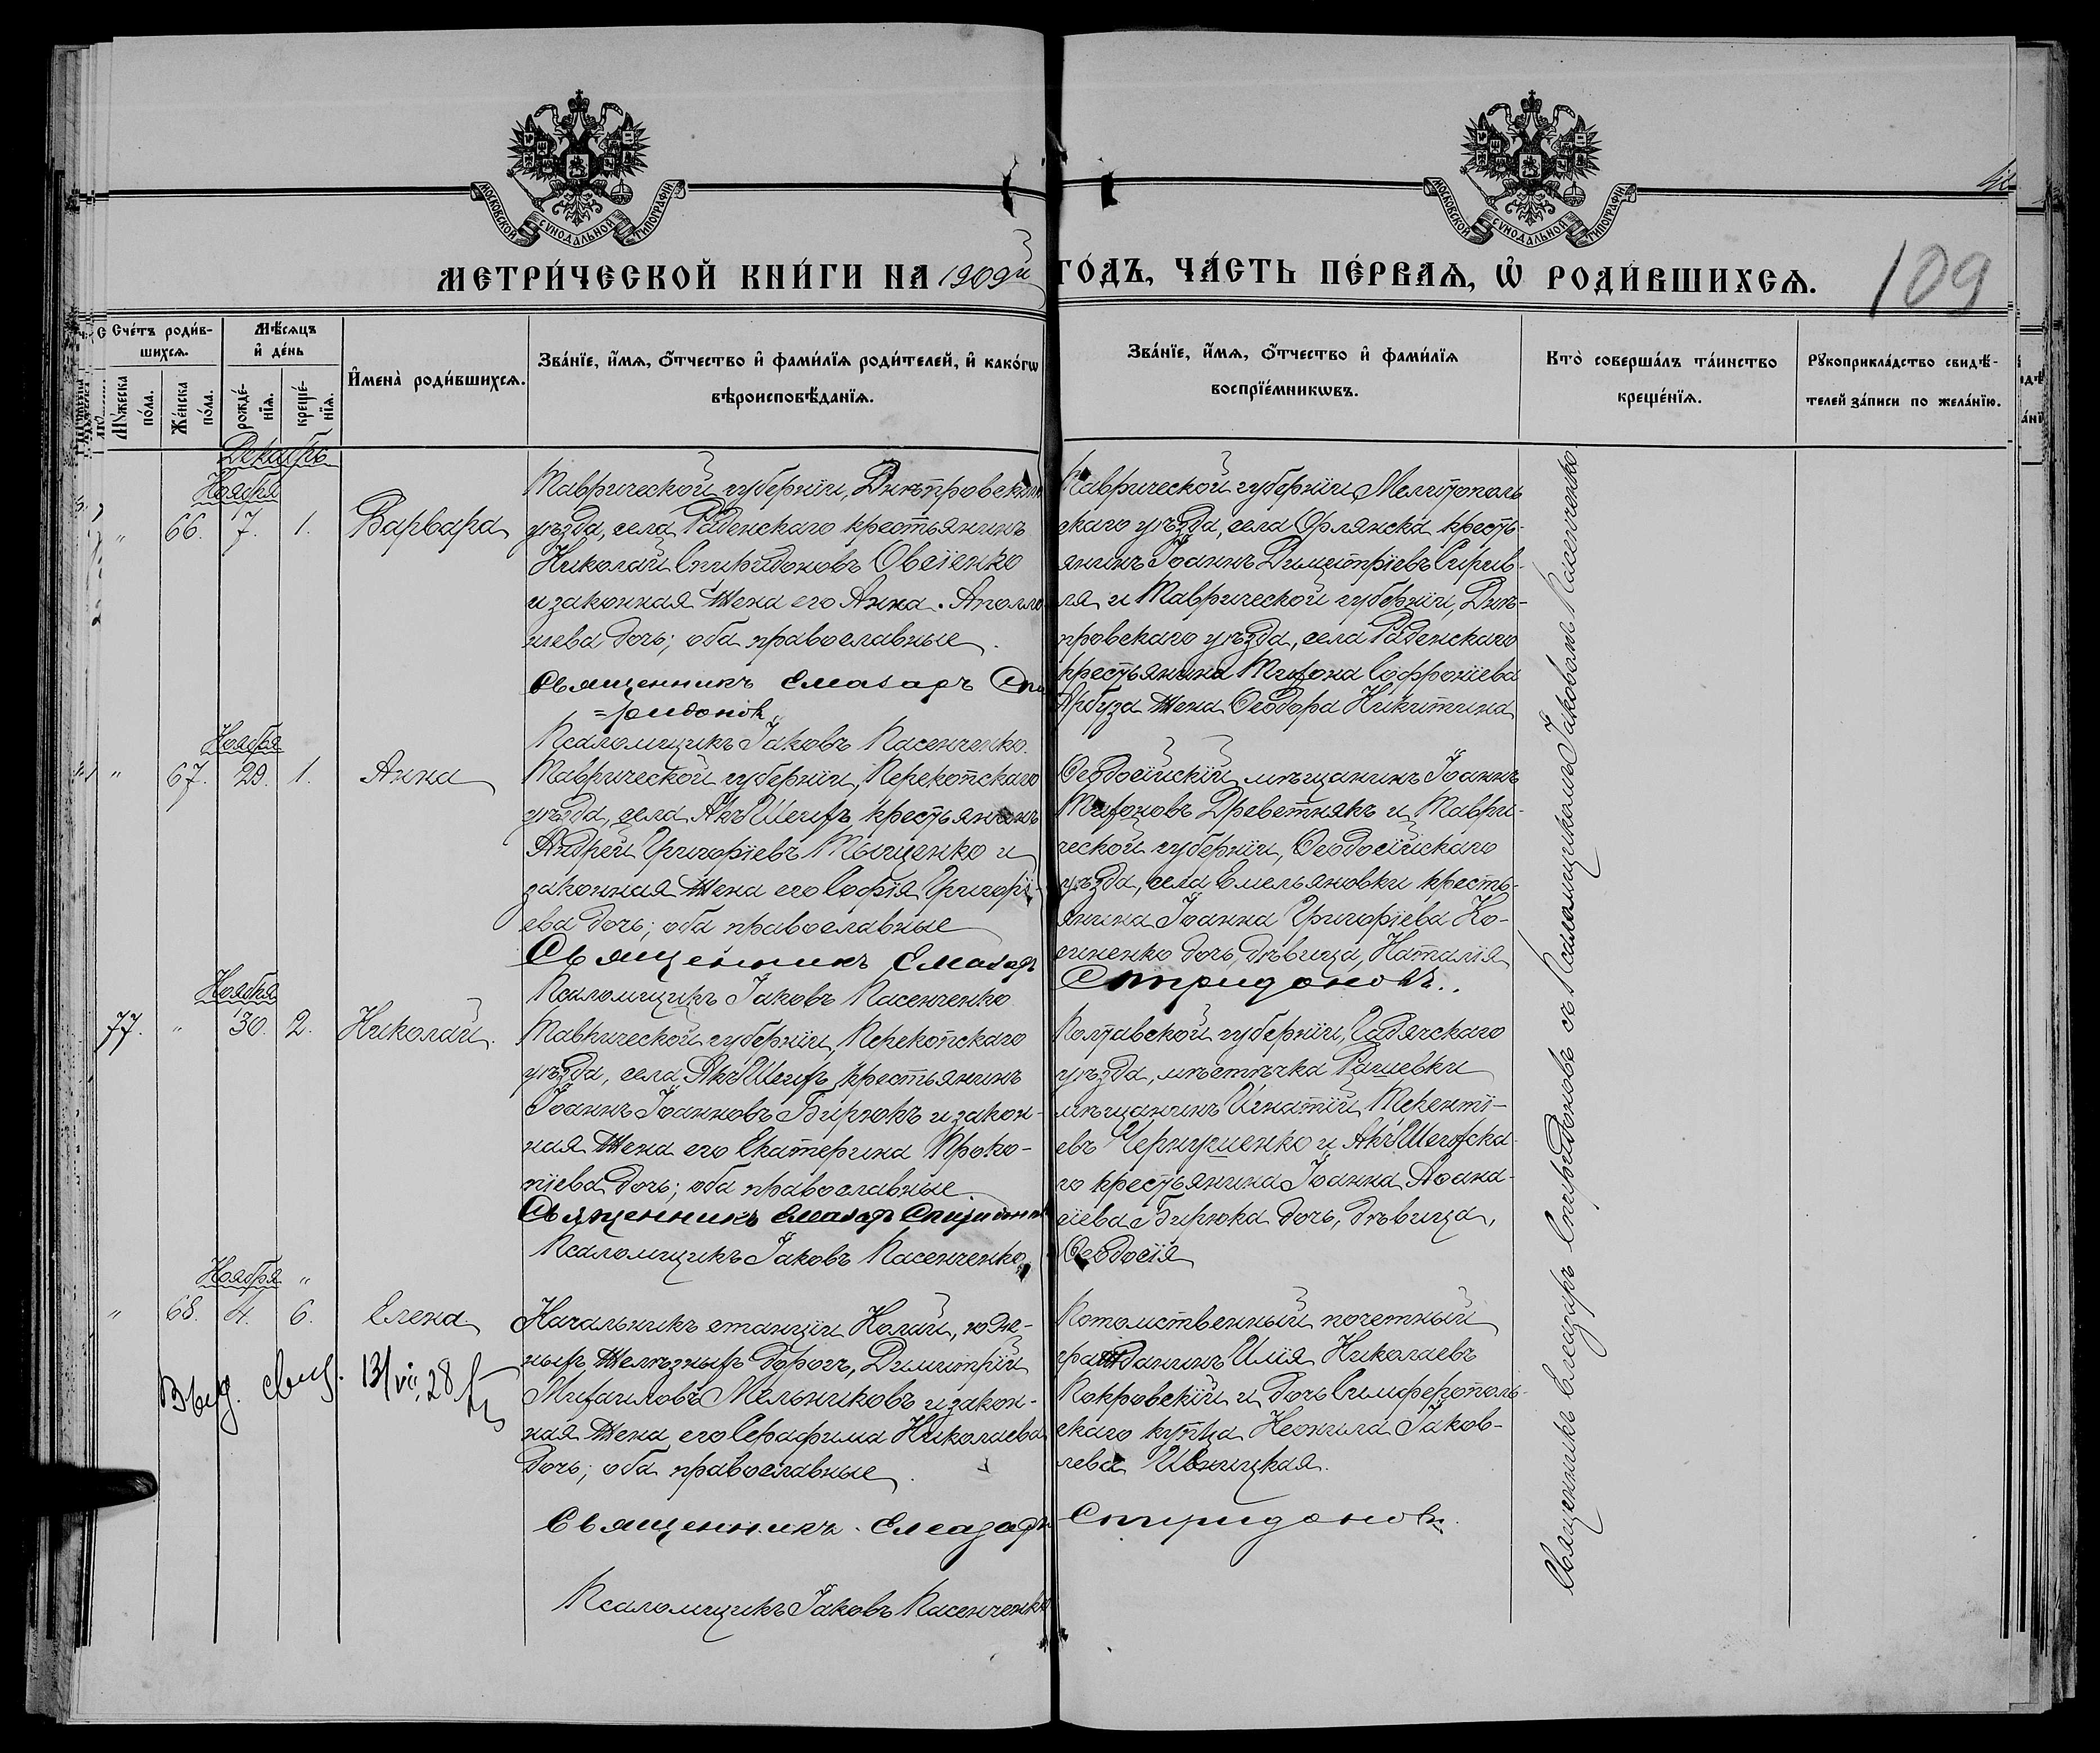 МОСКОВСКОЙ СѴНОДАЛЬНОЙ ТИПОГРАФІИ
МОСКОВСКОЙ СѴНОДАЛЬНОЙ ТИПОГРАФІИ
МЕТРИ́ЧЕСКОЙ КНИ́ГИ НА 1909й ГО́ДЪ, ЧА́СТЬ ПЕ́РВАѦ, Ѡ҆ РОДИ́ВШИХСѦ.
109
Сче́тъ роди́в-
шихсѧ.
Мꙋ́жеска
по́ла.
Же́нска
по́ла.
Мѣ́сѧцъ
и҆ де́нь
рожде́-
нїѧ.
креще́-
нїѧ.
И҆мена̀ роди́вшихсѧ.
Зва́нїе, и҆́мѧ, ѻ҆́тчество и҆ фами́лїѧ роди́телей, и҆ како́гѡ
вѣроисповѣ́данїѧ.
Зва́нїе, и҆́мѧ, ѻ҆́тчество и҆ фами́лїѧ
воспрїе́мникѡвъ.
Кто̀ соверша́лъ та́инство
креще́нїѧ.
Рꙋкоприкла́дство свидѣ́-
телей за́писи по жела́нїю.
Декабрь
Ноября
" 66. 7. 1. Варвара
Таврической губерніи, Днѣпровскаго
уѣзда, села Раденскаго крестьянинъ
Николай Спиридоновъ Овсіенко
и законная жена его Анна Аполло-
ніева дочь; оба православные.
Священникъ Елеазаръ Спи
=ридоновъ
Псаломщикъ Іаковъ Пасенченко.
Таврической губерніи Мелитополь
скаго уѣзда, села Орлянска кресть-
янинъ Іоаннъ Димитріевъ
ля и Таврической губерніи, Днѣ-
провскаго уѣзда, села Раденскаго
крестьянина Тихона Софроніева
Арбуза жена Ѳеодора Никитина
Ноября
" 67. 29. 1. Анна
Таврической губерніи, Перекопскаго
уѣзда, села Акъ Шеихъ крестьянинъ
Андрей Григоріевъ Тыщенко и
законная жена его Софія Григорі-
ева дочь; оба православные
Священникъ Елеазаръ
Псаломщикъ Іаковъ Пасенченко
Ѳеодосійскій мѣщанинъ Іоаннъ
Тихоновъ Древетнякъ и Таври-
ческой губерніи, Ѳеодосійскаго
уѣзда, села Емельяновки кресть-
янина Іоанна Григоріева Ко-
синенко дочь, дѣвица, Наталія
Спиридоновъ.
Ноября
77. " 30. 2. Николай.
Таврической губерніи, Перекопскаго
уѣзда, села Акъ Шеихъ крестьянинъ
Іоаннъ Іоанновъ Бирюкъ и закон-
ная жена его Екатерина Проко-
піева дочь; оба православные
Священникъ Елеазаръ Спиридоновъ
Псаломщикъ Іаковъ Пасенченко
Полтавской губерніи, Гадячскаго
уѣзда, мѣстечка Рашевки
мѣщанинъ Игнатій Теренті-
евъ Чернушенко и Акъ Шеихска-
го крестьянина Іоанна Аѳана-
сіева Бирюка дочь, дѣвица,
Ѳеодосія
Ноября "
" 68. 4. 6. Елена
Начальникъ станціи Колай, юж-
ныхъ желѣзныхъ дорогъ, Димитрій
Михаиловъ Мельниковъ и закон-
ная жена его Серафима Николаева
дочь; оба православные.
Священникъ Елеазаръ
Псаломщикъ Іаковъ Пасенченко
Потомственный почетный
гражданинъ Илія Николаевъ
Покровскій и дочь Симферополь-
скаго купца Неонила Іаков-
лева Ивницкая.
Спиридоновъ.
Выд. свид. 13/VII 28
Священникъ Елеазаръ Спиридоновъ съ Псаломщикомъ Іаковомъ Пасенченко